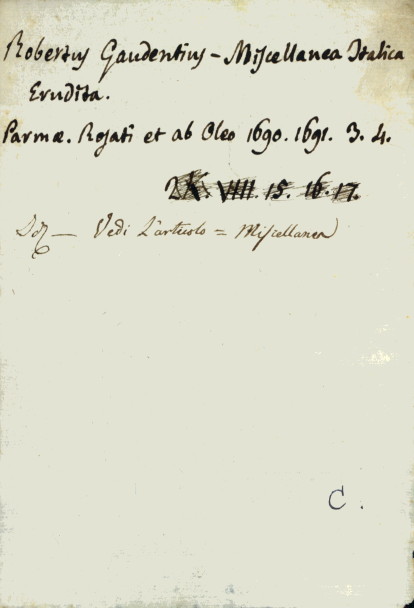 Robertus Gaudentius - Miscellanea Italica
Erudita.
Parmæ. Rosati et ab Oleo 1690. 1691. 3. 4.
VIII. 15. 16. 17.
Vedi L'articolo = Miscellanea
C.